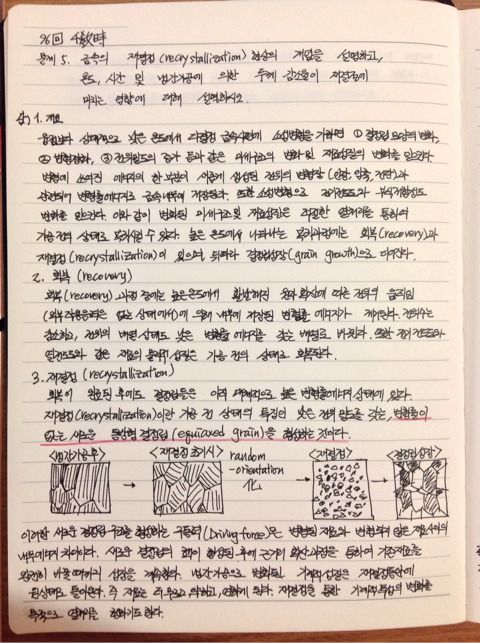 96回 4敎時
문제 5. 금속의 재결정(recrystallization) 현상의 개념을 설명하고,
온도, 시간 및 냉간가공에 의한 두께 감소율이 재결정에
미치는 영향에 대해 설명하시오.
1. 개요
융점보다 상대적으로 낮은 온도에서 다결정 금속시편에 소성변형을 가하면 ① 결정립 모양의 변화,
② 변형경화, ③ 전위밀도의 증가 등과 같은 미세구조의 변화 및 재료성질의 변화를 일으킨다.
변형에 쓰여진 에너지의 한 부분이 새롭게 생성된 전위의 변형장(인장, 압축, 전단)과
상관되어 변형률에너지로 금속내부에 저장된다. 또한 소성변형으로 전기전도도와 부식저항성도
변화를 일으킨다. 이와 같이 변화된 미세구조 및 재료성질은 적절한 열처리를 통하여
가공 전의 상태로 복귀시킬 수 있다. 높은 온도에서 나타나는 복귀과정에는 회복(recovery)과
재결정(recrystallization)이 있으며, 뒤따라 결정립성장(grain growth)으로 이어진다.
2. 회복 (recovery)
회복(recovery) 과정 중에는 높은온도에서 활발해진 원자 확산에 따른 전위의 움직임
(외부작용응력은 없는 상태에서)에 의해 내부에 저장된 변형률 에너지가 제거된다. 전위수는
감소하고, 전위의 배열 상태도 낮은 변형률 에너지를 갖는 배열로 바뀐다. 또한 전기전도도와
열전도도와 같은 재료의 물리적 성질은 가공 전의 상태로 회복된다.
3. 재결정 (recrystallization)
회복이 완료된 후에도 결정립들은 아직 상대적으로 높은 변형률에너지 상태에 있다.
재결정(recrystallization)이란 가공 전 상태의 특징인 낮은 전위 밀도를 갖는, 변형률이
없는 새로운 등축형 결정립(equiaxed grain)을 형성하는 것이다.
<냉간가공 후> <재결정 초기시> random <재결정> <결정립성장>
-orientation
化
이러한 새로운 결정립 구조를 형성하는 구동력(Driving force)은 변형된 재료와 변형되지 않은 재료사이의
내부에너지 차이다. 새로운 결정립의 핵이 형성된 후에 근거리 확산과정을 통하여 기존재료를
완전히 바꿀때까지 성장을 계속한다. 냉간가공으로 변화된 기계적성질은 재결정동안에
원상태로 돌아온다. 즉 재료는 더 무르고 약하고, 연하게 된다. 재결정을 통한 기계적특성의 변화를
목적으로 열처리를 행하기도 한다.